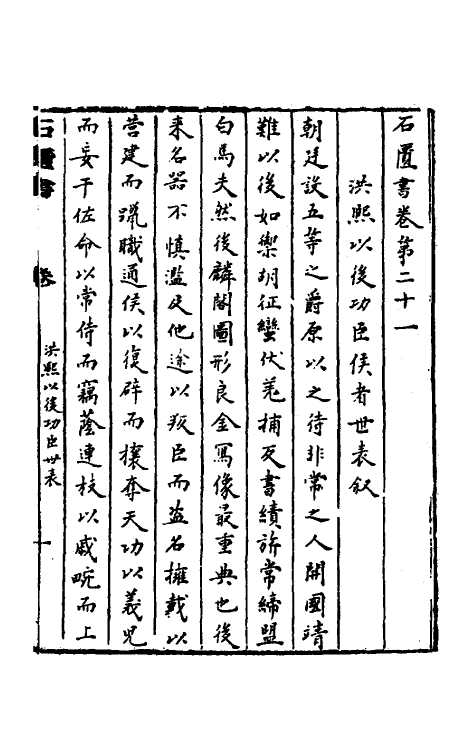 石匱書卷第二十一
洪熙以後功臣侯者世表叙
朝廷設五等之爵原以之待非常之人開國靖
難以後如禦胡征蠻伏羌捕反書績旂常締盟
白馬夫然後麟閣圖形良金寫像最重典也後
来名器不慎濫及他途以叛臣而盗名擁戴以
营建而躐職通侯以復辟而攘奪天功以義兒
而妄干佐命以常侍而竊蔭連枝以戚畹而上
石匱書 卷 洪熙以後功臣世表 一